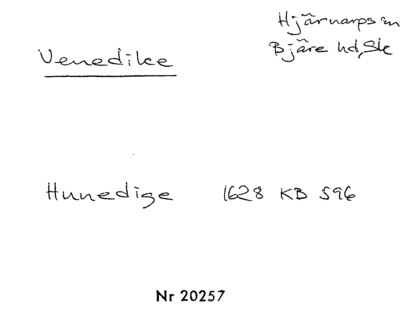 Hjärnarps sn
Venedike
Bjäre hd, Sk
Hunedige 1628 KB 596
Nr 20257